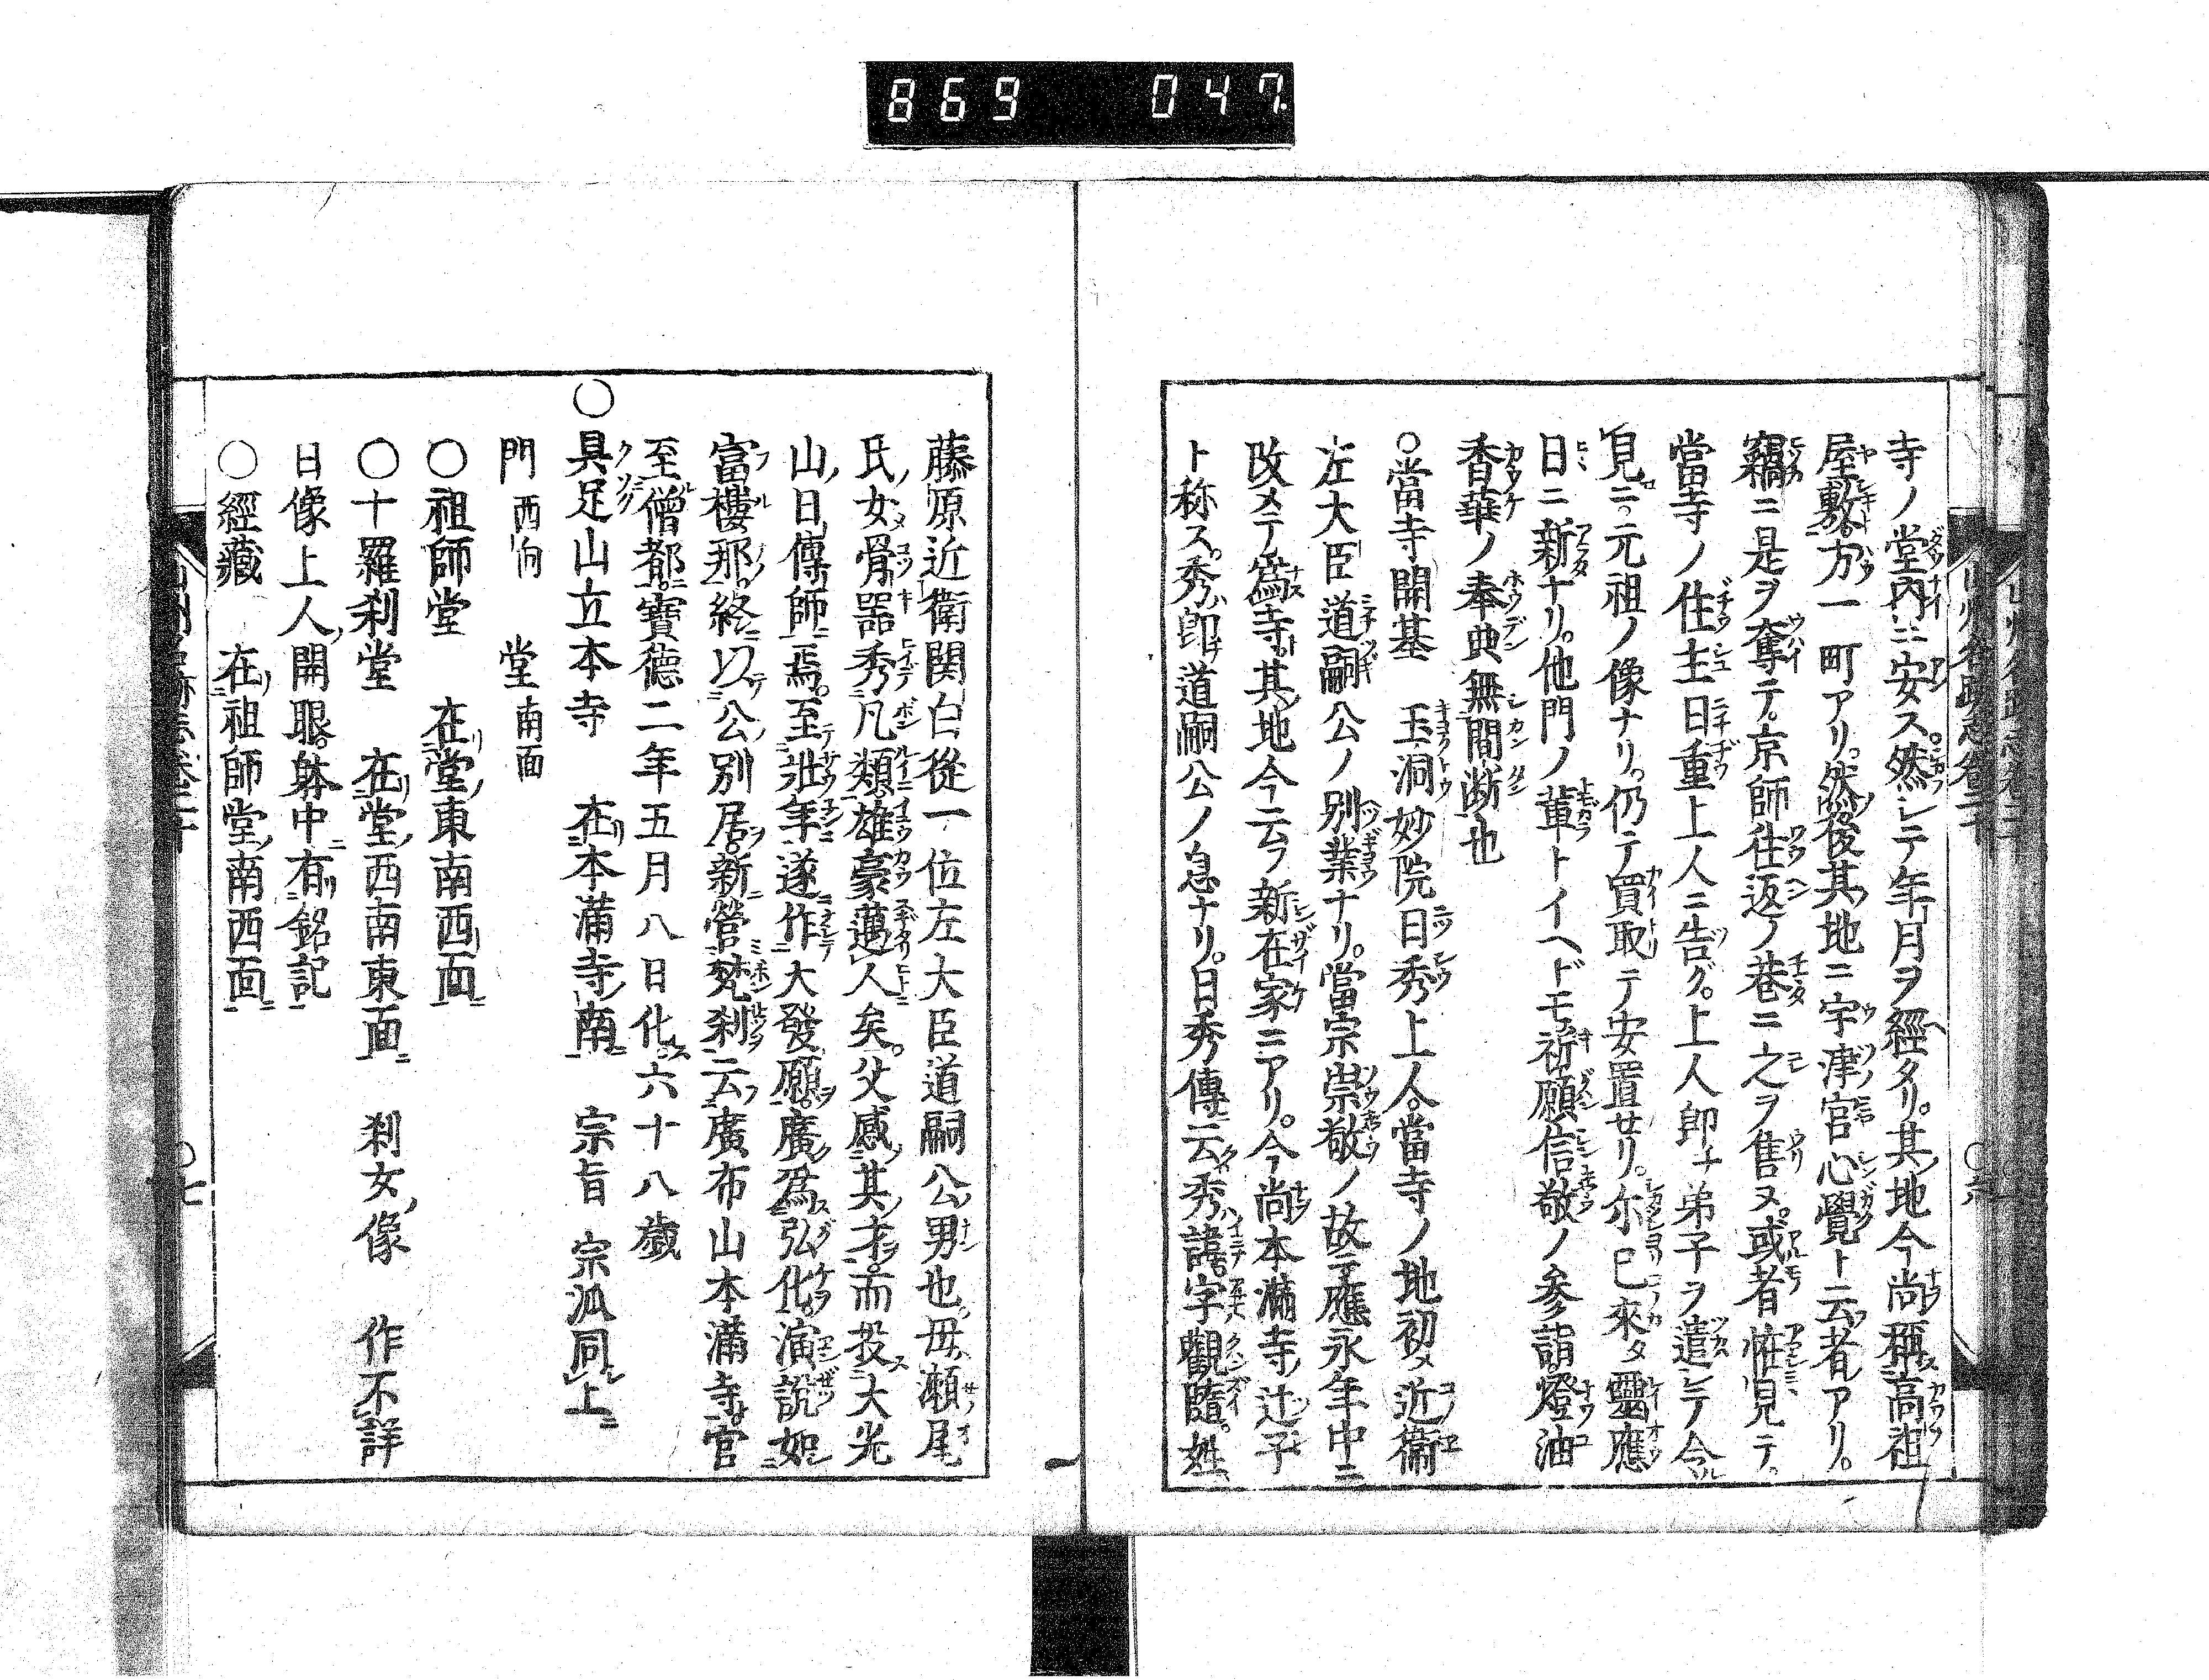 869 047
寺ノ堂内ニ安ス。然シテ年月ヲ經タリ。其地今尚稱高祖
屋敷。方一町アリ。然後其地ニ宇津宮心覺ト云者アリ。
竊ニ是ヲ奪テ。京師往返ノ巷ニ之ヲ售ヌ。或者恠見テ。
當寺ノ住主日重上人ニ告グ。上人即チ弟子ヲ遣シテ令
見ニ。元祖ノ像ナリ。仍テ買取テ安置セリ。尓已來タ靈應
日ニ新ナリ。他門ノ輩トイヘドモ祈願信敬ノ参詣。燈油
香華ノ奉奠無間断也
○當寺開基 玉洞妙院日秀上人。當寺ノ地初メ近衞
左大臣道嗣公ノ別業ナリ。當宗崇敬ノ故ニ應永年中ニ
改メテ爲寺。其地今云フ新在家ニアリ。今尚本滿寺辻子
ト称ス。秀即道嗣公ノ息ナリ。日秀傳云。秀諱。字觀隨。姓
藤原近衛関白從一位左大臣道嗣公男也。母瀬尾
氏女。骨器秀凡類雄豪邁人矣。父感其才。而投大光
山日傳師焉。至壯年遂作大發願。廣爲弘化。演説如
富樓那。終以公別居。新營梵刹云廣布山本滿寺。官
至僧都。寶德二年五月八日化。六十八歳
○具足山立本寺 在本滿寺南 宗旨 宗派同上
門西向 堂南面
○祖師堂 在堂東南西面
○十羅刹堂 在堂西南東面 刹女像 作不詳
日像上人開眼。躰中有銘記
○經藏 在祖師堂南西面